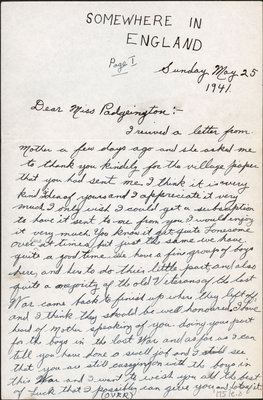 SOMEWHERE IN
ENGLAND
Page I
Sunday May 25
1941.
Dear Miss Padgington:-
I reived a letter from
Mother a few days ago and she asked me
to thank you kindly for the village paper
that you had sent me. I think it is very
kind idea of yours and I appreciate it very
much. I only wish I could get a subscription
to have it sent to me from you I would enjoy
it very much. You know it get quite lonesome
over at times, but just the same we have
quite a good time. We have a fine group of boys
here, and her to do thier little part, and also
quite a majority of the old Viterans of the last
War came back to finish up where they left off,
and I think they should be well honoured. I have
heard of Mother speaking of you. doing your part
for the boys in the last War and as far as I can
tell you have done a swell job and I still see
that you are still easy upon with the boys in
this War and I want to wish you all the best
of luck that I possibly can give you and lots of it
(OVER)